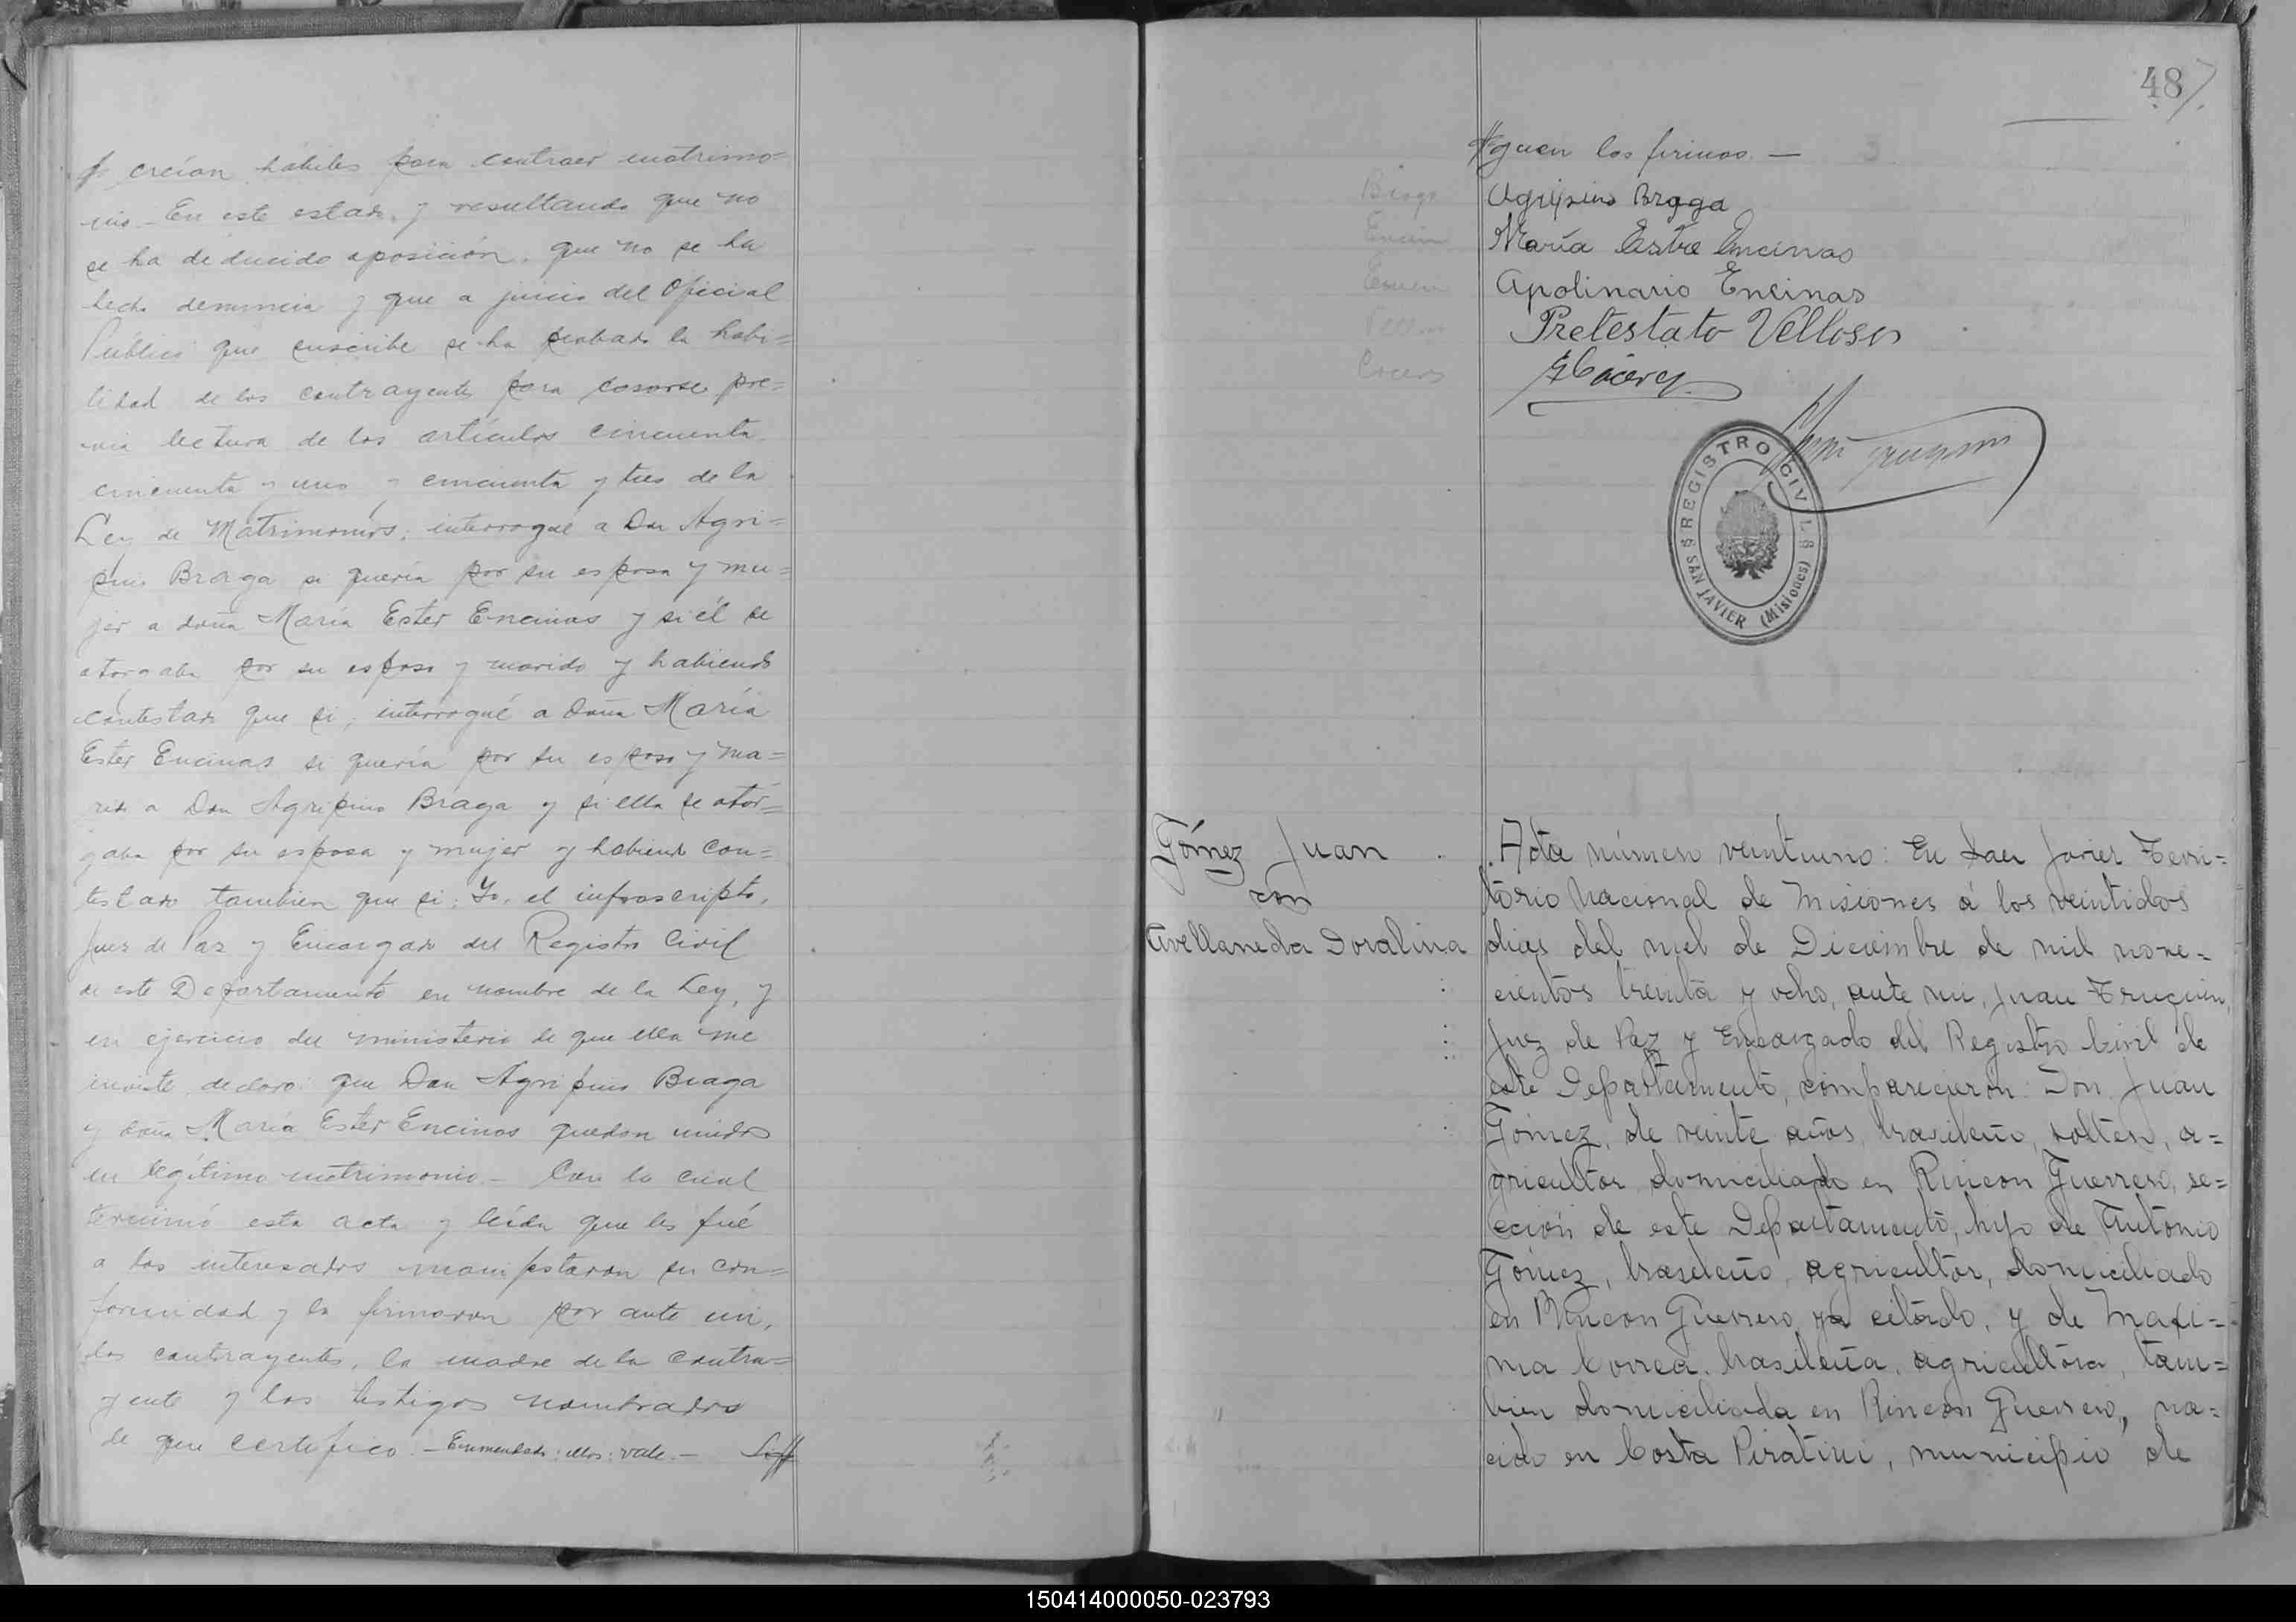 creían hábiles para contraer matrimo=
nio - En este estado, y resultando que no
se ha deducido oposición, que no se ha
hecho denuncia y que a juicio del Oficial
Público que suscribe se ha probado la habi=
lidad de los contrayentes para casarse pre=
via lectura de los artículos cincuenta,
cincuenta y uno y cincuenta y tres de la
Ley de Matrimonios; interrogué a Don Agri=
pino Braga si quería por su esposa y mu=
jer a doña María Ester Encinas y si él se
otorgaba por su esposo y marido y habiendo
contestado que si, interrogué a Doña María
Ester Encinas si quería por su esposo y ma=
rido a Don Agripino Braga y si ella se otor=
gaba por su esposa y mujer y habiendo con=
testado tambien que si: Yo, el infrascripto,
Juez de Paz y Encargado del Registro Civil
de este Departamento en nombre de la Ley, y
en ejercicio del ministerio de que ella me
inviste, declaro: que Don Agripino Braga
y doña María Ester Encinas quedan unidos
en legítimo matrimonio. - Con lo cual
terminó esta acta y leída que les fué
a los interesados manifestaron su con=
formidad y la firmaron por ante mi,
los contrayentes, la madre de la contra=
yente y los testigos nombrados
de que certifico. - Enmendado: ellos: vale. -
48
guen las firmas. -
Agripino Braga
María Estre Encinas
Apolinario Encinas
Pretestato Velloso
Cáceres
REGISTRO CIVIL
SAN JAVIER (Misiones)
Gómez Juan
con
Avellaneda Doralina
Acta número veintiuno: En San Javier Terri=
torio Nacional de Misiones á los veintidos
dias del mes de Diciembre de mil nove=
cientos treinta y ocho, ante mi, Juan Truquin,
Juez de Paz y Encargado del Registro Civil de
este Departamento, comparecieron: Don Juan
Gómez, de veinte años, brasileño, soltero, a=
gricultor, domiciliado en Rincon Guerrero, se=
cción de este Departamento, hijo de Antonio
Gómez, brasileño, agricultor, domiciliado
en Rincon Guerrero ya citado, y de Maxi=
ma Correa, brasileña, agricultora, tam=
bien domiciliada en Rincon Guerrero, na=
cido en Costa Piratini, municipio de
150414000050-023793